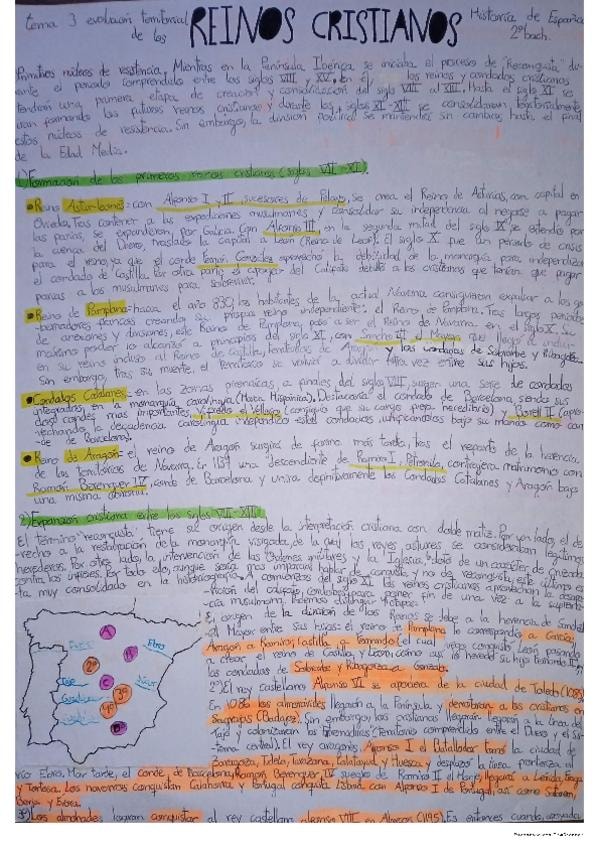 tema 3 evolución territorial de los REINOS CRISTIANOS Historia de España 2ºbach.
Primitivos núcleos de resistencia. Mientras en la Península Ibérica se iniciaba el proceso de "Reconquista" du-
rante el periodo comprendido entre los siglos VIII y XV, en él los reinos y condados cristianos
tendrán una primera etapa de creación y consolidación del siglo VIII al XIII. Hasta el siglo XI se
van formando los futuros reinos cristianos y durante los siglos XI-XIII se consolidarán territorialmente
estos núcleos de resistencia. Sin embargo, la división política se mantendrá sin cambios hasta el final
de la Edad Media.
1) Formación de los primeros reinos cristianos (siglos VIII-XI).
Reino Astur-leonés: con Alfonso I y II, sucesores de Pelayo, se crea el Reino de Asturias, con capital en
Oviedo. Tras contener a las expediciones musulmanas y consolidar su independencia al negarse a pagar
las parias, se expandieron por Galicia. Con Alfonso III, en la segunda mitad del siglo IX se extendió por
la cuenca del Duero, traslada la capital a León (Reino de León). El siglo X fue un periodo de crisis
para el reino, ya que el conde Fernán González aprovechó la debilidad de la monarquía para independizar
el condado de Castilla. Por otra parte, el apogeo del Califato debilitó a los cristianos que tenían que pagar
parias a los musulmanes para sobrevivir.
Reino de Pamplona: hacia el año 830, los habitantes de la actual Navarra consiguieron expulsar a los go-
bernadores francos creando su propio reino independiente: el Reino de Pamplona. Tras largos periodos
de anexiones y divisiones, este Reino de Pamplona, pasó a ser el Reino de Navarra en el siglo X. Su
máximo poder lo alcanzó a principios del siglo XI, con Sancho III el Mayor que llegó a incluir
en su reino incluso al Reino de Castilla, territorios de Aragón y los condados de Sobrarbe y Ribagorza.
Sin embargo, tras su muerte, el territorio se volvió a dividir otra vez entre sus hijos.
Condados Catalanes: en las zonas pirenaicas, a finales del siglo VIII, surgen una serie de condados
integrados en la monarquía carolingia (Marca Hispánica). Destacaría el condado de Barcelona, siendo sus
condes más importantes Wifredo el Velloso (consiguió que su cargo fuera hereditario) y Borrell II (apro-
vechando la decadencia carolingia independizó estos condados, unificándolos bajo su mando como con-
de de Barcelona).
Reino de Aragón: el reino de Aragón surgirá de forma más tardía, tras el reparto de la herencia
de los territorios de Navarra. En 1137 una descendiente de Ramiro I, Petronila, contrajera matrimonio con
Ramón Berenguer IV, conde de Barcelona y unirá definitivamente los Condados Catalanes y Aragón bajo
una misma corona.
2) Expansión cristiana entre los siglos VIII-XIII
El término "reconquista" tiene su origen desde la interpretación cristiana con doble matiz. Por un lado, el de-
recho a la restauración de la monarquía visigoda, de la cual los reyes astures se consideraban legítimos
herederos. Por otro lado, la intervención de las Órdenes militares y la Iglesia, dotó de un carácter de cruzada
contra los infieles. Por todo ello, aunque sería más imparcial hablar de conquista y no de reconquista, este último es-
tá muy consolidado en la historiografía. A comienzos del siglo XI los reinos cristianos aprovechan la desapa-
rición del califato cordobés para poner fin de una vez a la suprema-
cía musulmana. Podemos distinguir etapas:
El origen de la división de los Reinos se debe a la herencia de Sancho
el Mayor entre sus hijos: el reino de Pamplona le correspondió a García,
Aragón a Ramiro, Castilla a Fernando (el cual luego conquistó León, pasando
a crear el reino de Castilla y León, como así lo heredó su hijo Fernando II),
los condados de Sobrarbe y Ribagorza a Gonzalo.
2º) El rey castellano Alfonso VI se apodera de la ciudad de Toledo (1085).
En 1086 los almorávides llegarán a la Península y derrotarán a los cristianos en
Sagrajas (Badajoz). Sin embargo, los cristianos llegarán a la línea del
Tajo y colonizarán las Extremaduras (territorios comprendidos entre el Duero y el Sis-
tema central). El rey aragonés, Alfonso I el Batallador toma la ciudad de
Zaragoza, Tudela, Tarazona, Calatayud y Huesca y desplazó la línea fronteriza al
río Ebro. Más tarde, el conde de Barcelona Ramón Berenguer IV suegro de Ramiro II el Monje, llegará a Lérida, Fraga
y Tortosa. Los navarros conquistan Calahorra y Portugal conquista Lisboa con Alfonso I de Portugal, así como
Beja y Évora.
3º) Los almohades logran conquistar al rey castellano Alfonso VIII en Alarcos (1195). Es entonces cuando,
A
B
2º
C
3º
4º
D
Ebro
Tajo
Júcar